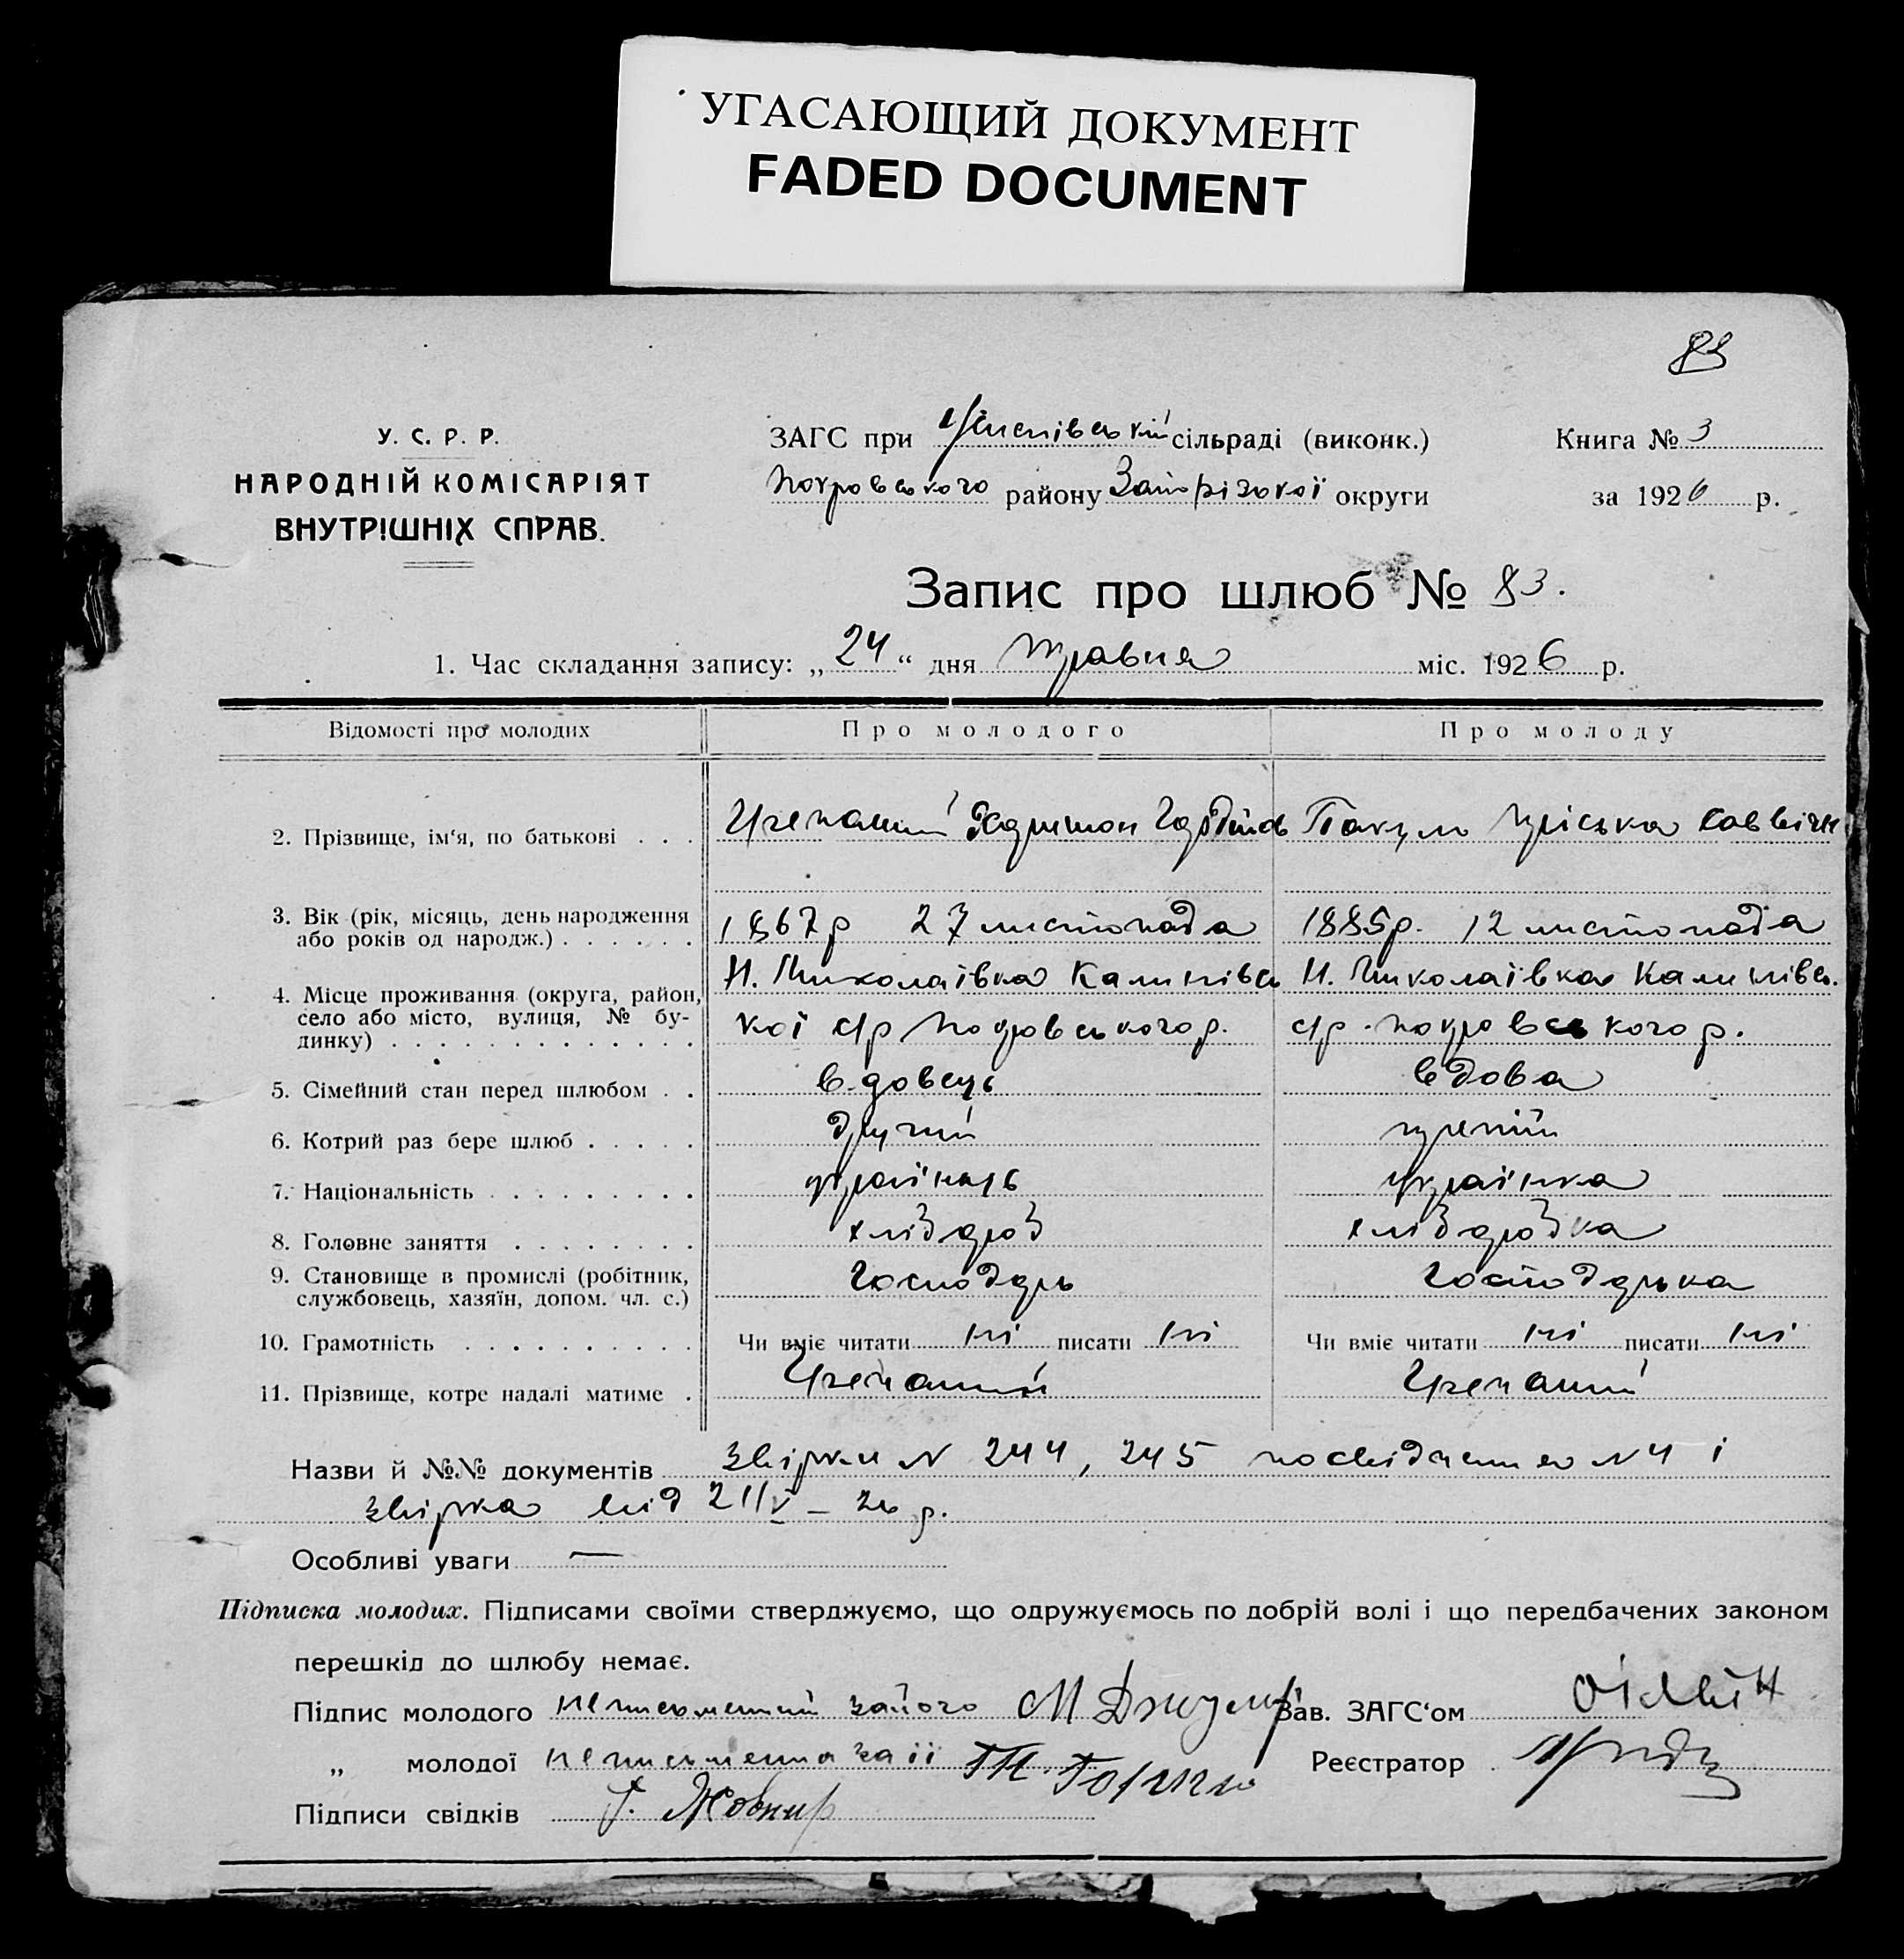 УГАСАЮЩИЙ ДОКУМЕНТ
FADED DOCUMENT
83
У. С. Р. Р.
НАРОДНІЙ КОМІСАРІЯТ
ВНУТРІШНІХ СПРАВ.
ЗАГС при сільраді (виконк.)
Покровського району Запорізької округи
Книга № 3
за 1926 р.
Запис про шлюб № 83.
1. Час складання запису: „24“ дня травня міс. 1926 р.
Відомості про молодих Про молодого Про молоду
2. Прізвище, ім‘я, по батькові . . . Пакул Пріська Саввічн
3. Вік (рік, місяць, день народження
або років од народж.) . . . . . . 1867р 27 листопада 1885р. 12 листопада
4. Місце проживання (округа, район,
село або місто, вулиця, № бу-
динку) . . . . . . . . . . . . .
Н. Миколаївка Калинівсь Н. Миколаївка Калинівсь.
кої с/р Покровського р. с/р. покровського р.
5. Сімейний стан перед шлюбом . . вдовець вдова
6. Котрий раз бере шлюб . . . . . другий третій
7. Національність . . . . . . . . . українець українка
8. Головне заняття . . . . . . . . хлібороб хліборобка
9. Становище в промислі (робітник,
службовець, хазяїн, допом. чл. с.) господарь господарька
10. Грамотність . . . . . . . . . . Чи вміє читати ні писати ні Чи вміє читати ні писати ні
11. Прізвище, котре надалі матиме .
Назви й №№ документів звірки № 244, 245 посвідчення №4 і
звірка від 21/V – 26 р.
Особливі уваги —
Підписка молодих. Підписами своїми стверджуємо, що одружуємось по добрій волі і що передбачених законом
перешкід до шлюбу немає.
Підпис молодого неписьменний за його М Зав. ЗАГС‘ом
„ молодої неписьменна за її Реєстратор
Підписи свідків